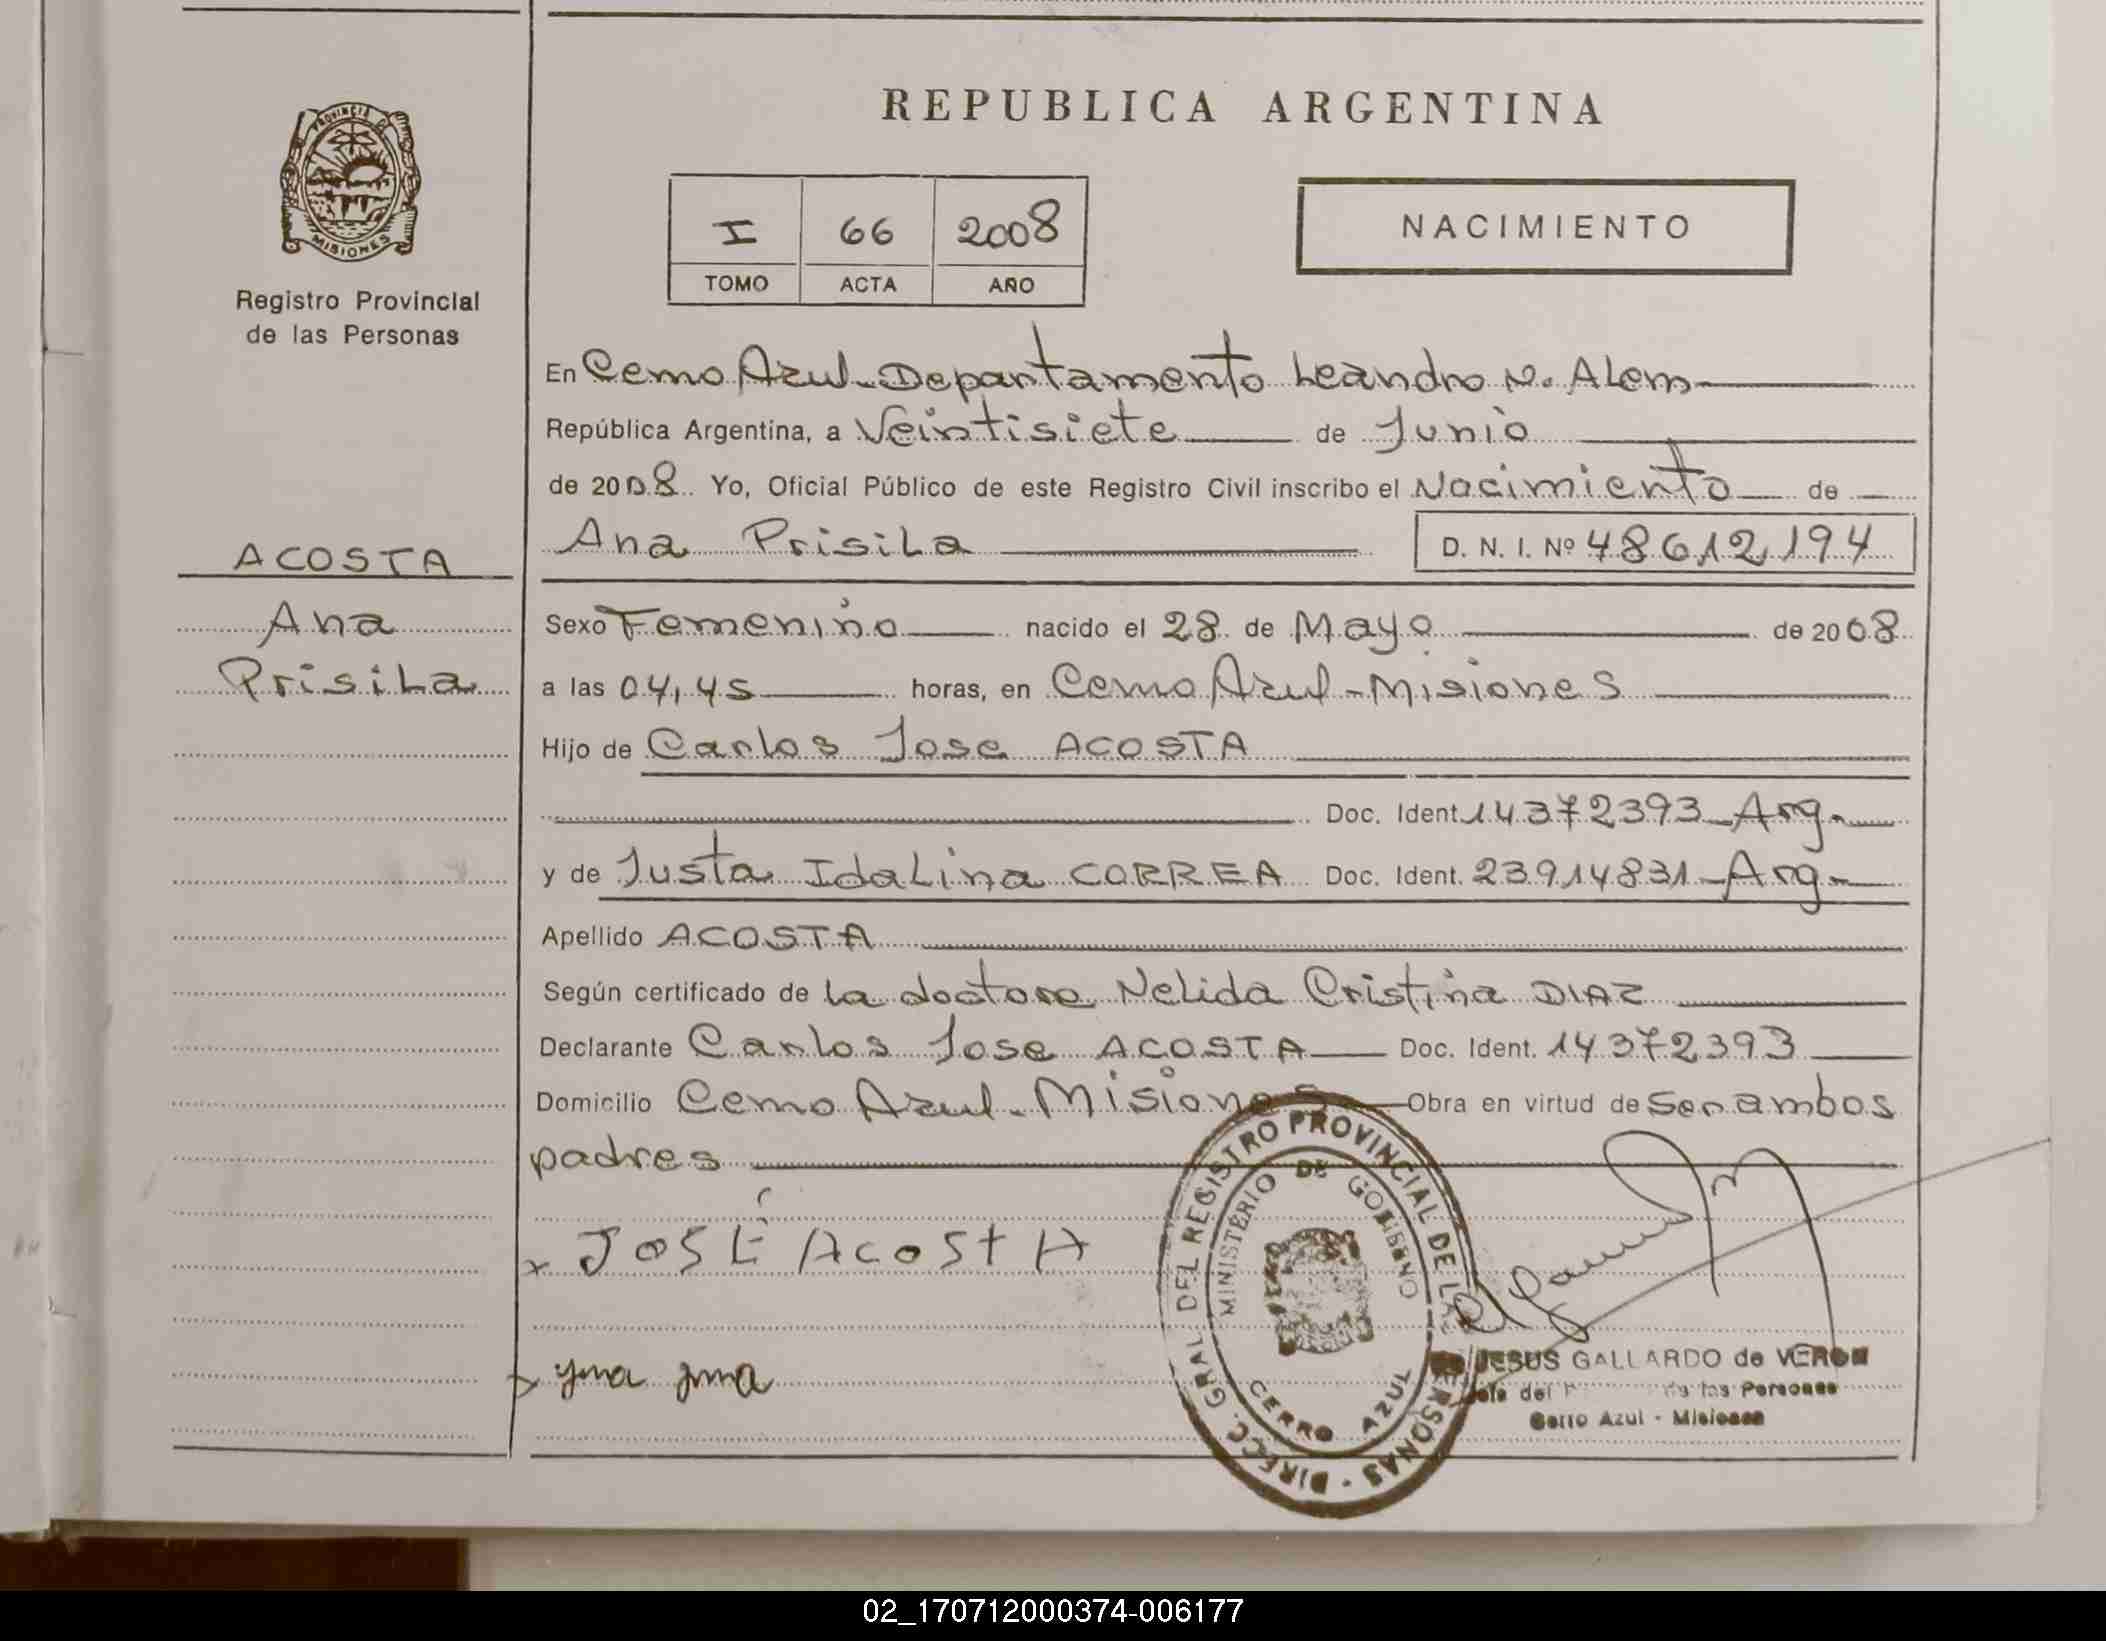 PROVINCIA DE
MISIONES
Registro Provincial
de las Personas
ACOSTA
Ana
Prisila
REPUBLICA ARGENTINA
I 66 2008
TOMO ACTA AÑO
NACIMIENTO
En Cerro Azul - Departamento Leandro N. Alem
República Argentina, a Veintisiete de Junio
de 2008. Yo, Oficial Público de este Registro Civil inscribo el Nacimiento de
Ana Prisila D. N. I. Nº 48612194
Sexo Femenino nacido el 28 de Mayo de 2008
a las 04,45 horas, en Cerro Azul - Misiones
Hijo de Carlos Jose ACOSTA
Doc. Ident. 14372393 - Arg.
y de Justa Idalina CORREA Doc. Ident. 23914831 - Arg.
Apellido ACOSTA
Según certificado de la doctora Nelida Cristina DIAZ
Declarante Carlos Jose ACOSTA Doc. Ident. 14372393
Domicilio Cerro Azul - Misiones Obra en virtud de Ser ambos
padres
x JOSÉ ACOSTA
x
DIRECC. GRAL. DEL REGISTRO PROVINCIAL DE LAS PERSONAS
MINISTERIO DE GOBIERNO
CERRO AZUL
JESUS GALLARDO de VERON
Jefe del de las Personas
Cerro Azul - Misiones
02_170712000374-006177